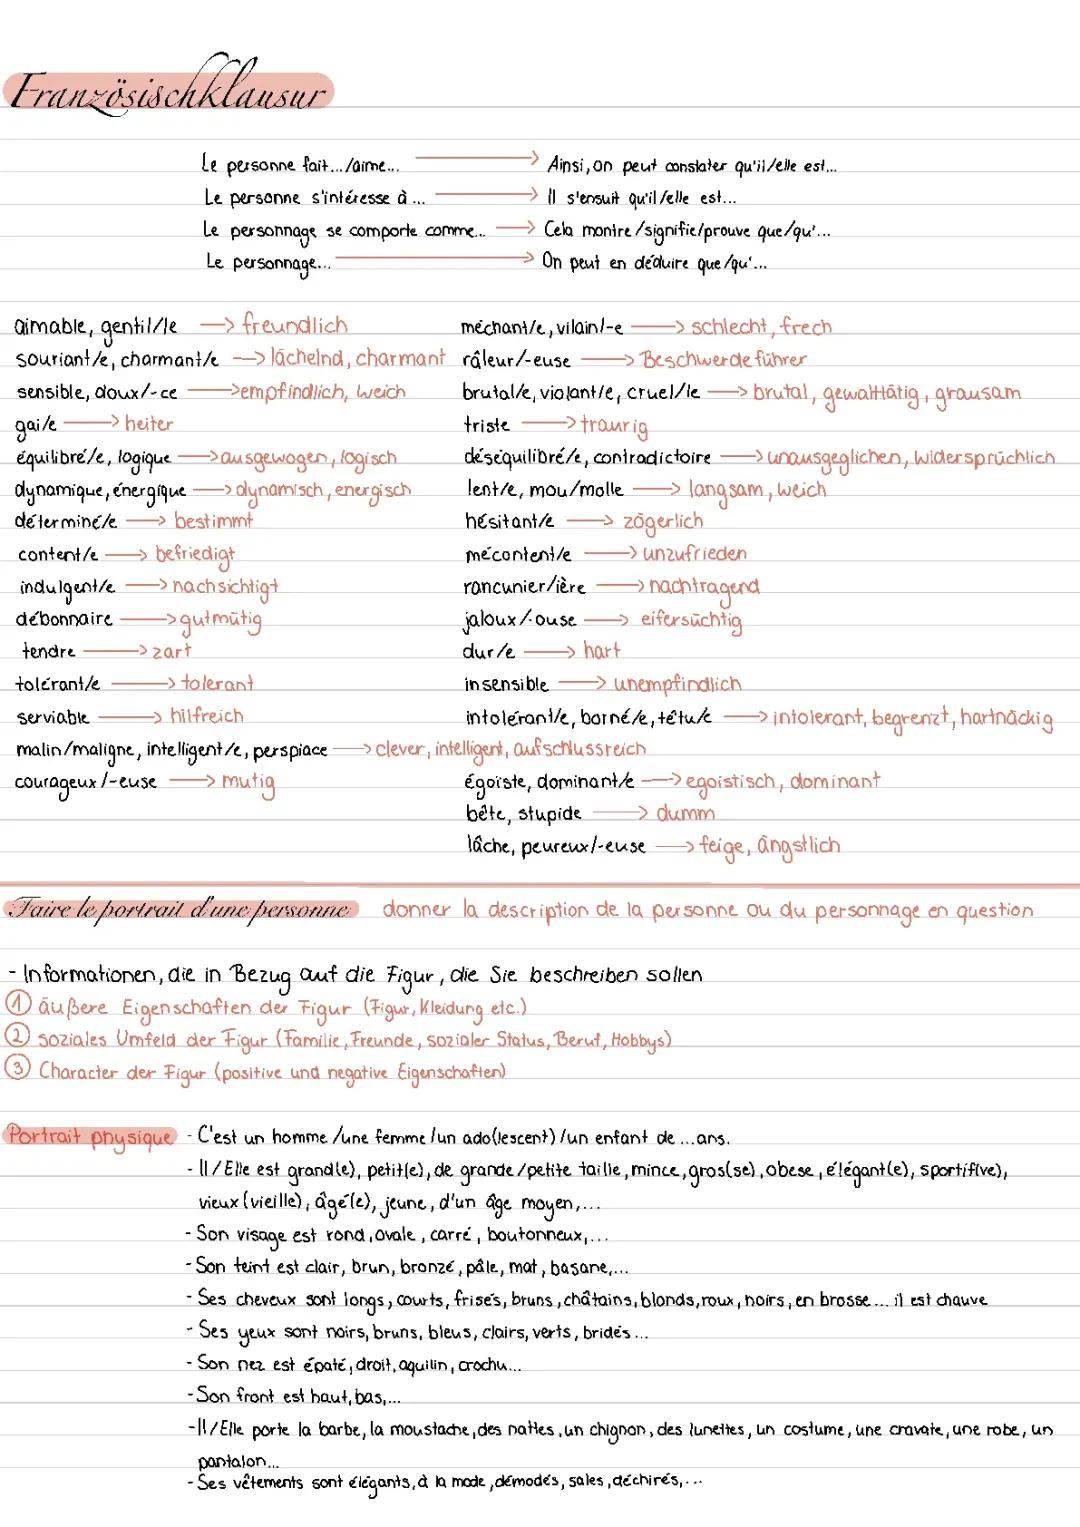 Französischklausur
Le personne fait.../aime... → Ainsi, on peut constater qu'il/elle est...
Le personne s'intéresse à ... → Il s'ensuit qu'il/elle est...
Le personnage se comporte comme... → Cela montre/signifie/prouve que/qu'...
Le personnage... → On peut en déduire que/qu'...
aimable, gentil/le → freundlich
souriant/e, charmant/e → lächelnd, charmant
sensible, doux/-ce → empfindlich, weich
gai/e → heiter
équilibré/e, logique → ausgewogen, logisch
dynamique, énergique → dynamisch, energisch
déterminé/e → bestimmt
content/e → befriedigt
indulgent/e → nachsichtigt
débonnaire → gutmütig
tendre → zart
tolérant/e → tolerant
serviable → hilfreich
malin/maligne, intelligent/e, perspiace → clever, intelligent, aufschlussreich
courageux/-euse → mutig
méchant/e, vilain/-e → schlecht, frech
râleur/-euse → Beschwerdeführer
brutal/e, violant/e, cruel/le → brutal, gewalttätig, grausam
triste → traurig
déséquilibré/e, contradictoire → unausgeglichen, widersprüchlich
lent/e, mou/molle → langsam, weich
hésitant/e → zögerlich
mécontent/e → unzufrieden
rancunier/ière → nachtragend
jaloux/-ouse → eifersüchtig
dur/e → hart
insensible → unempfindlich
intolérant/e, borné/e, têtu/e → intolerant, begrenzt, hartnäckig
égoïste, dominant/e → egoistisch, dominant
bête, stupide → dumm
lâche, peureux/-euse → feige, ängstlich
Faire le portrait d'une personne donner la description de la personne ou du personnage en question
- Informationen, die in Bezug auf die Figur, die Sie beschreiben sollen
① äußere Eigenschaften der Figur (Figur, Kleidung etc.)
② soziales Umfeld der Figur (Familie, Freunde, sozialer Status, Beruf, Hobbys)
③ Character der Figur (positive und negative Eigenschaften)
Portrait physique - C'est un homme/une femme/un ado(lescent)/un enfant de ...ans.
- Il/Elle est grand(e), petit(e), de grande/petite taille, mince, gros(se), obese, élégant(e), sportif(ve),
vieux (vieille), âgé(e), jeune, d'un âge moyen,...
- Son visage est rond, ovale, carré, boutonneux,...
- Son teint est clair, brun, bronzé, pâle, mat, basane,...
- Ses cheveux sont longs, courts, frisés, bruns, châtains, blonds, roux, noirs, en brosse... il est chauve
- Ses yeux sont noirs, bruns, bleus, clairs, verts, bridés...
- Son nez est épaté, droit, aquilin, crochu...
- Son front est haut, bas,...
- Il/Elle porte la barbe, la moustache, des nattes, un chignon, des lunettes, un costume, une cravate, une robe, un
pantalon...
- Ses vêtements sont élégants, à la mode, démodés, sales, déchirés,...